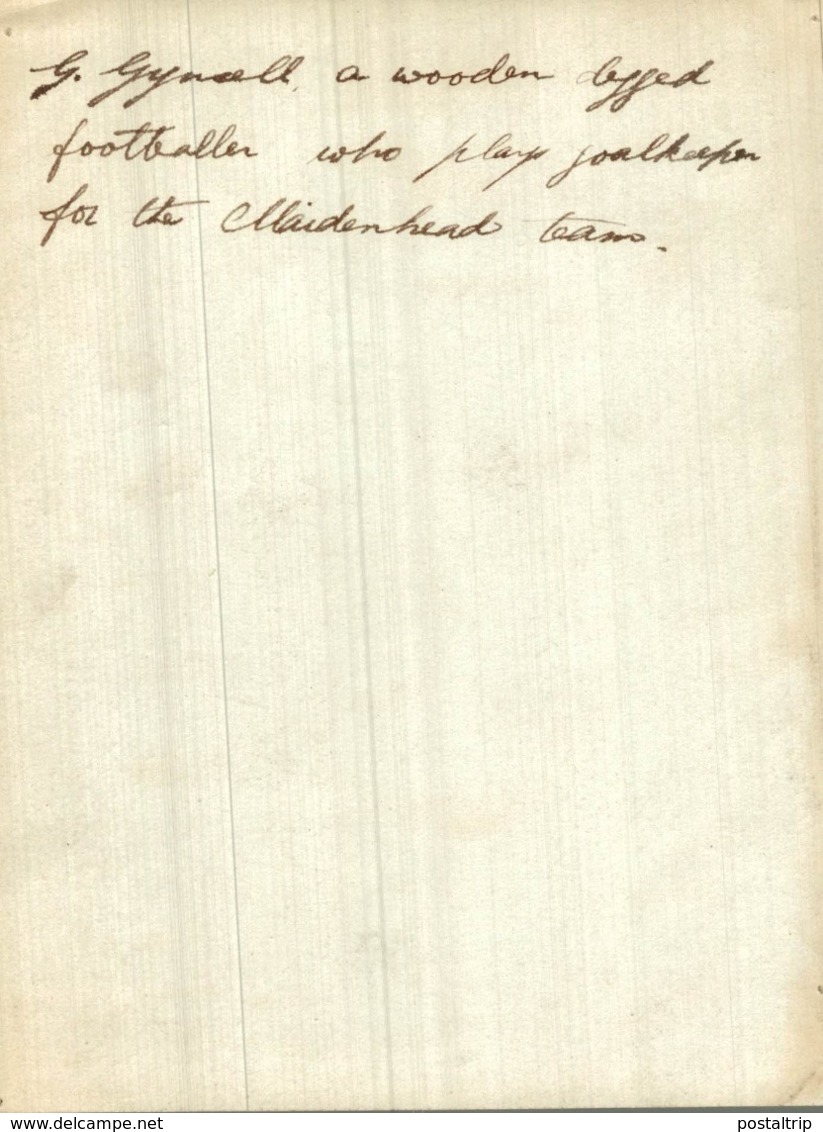 G. Gyncell, a wooden legged
footballer who plays goalkeeper
for the Maidenhead team.
www.delcampe.net
postaltrip